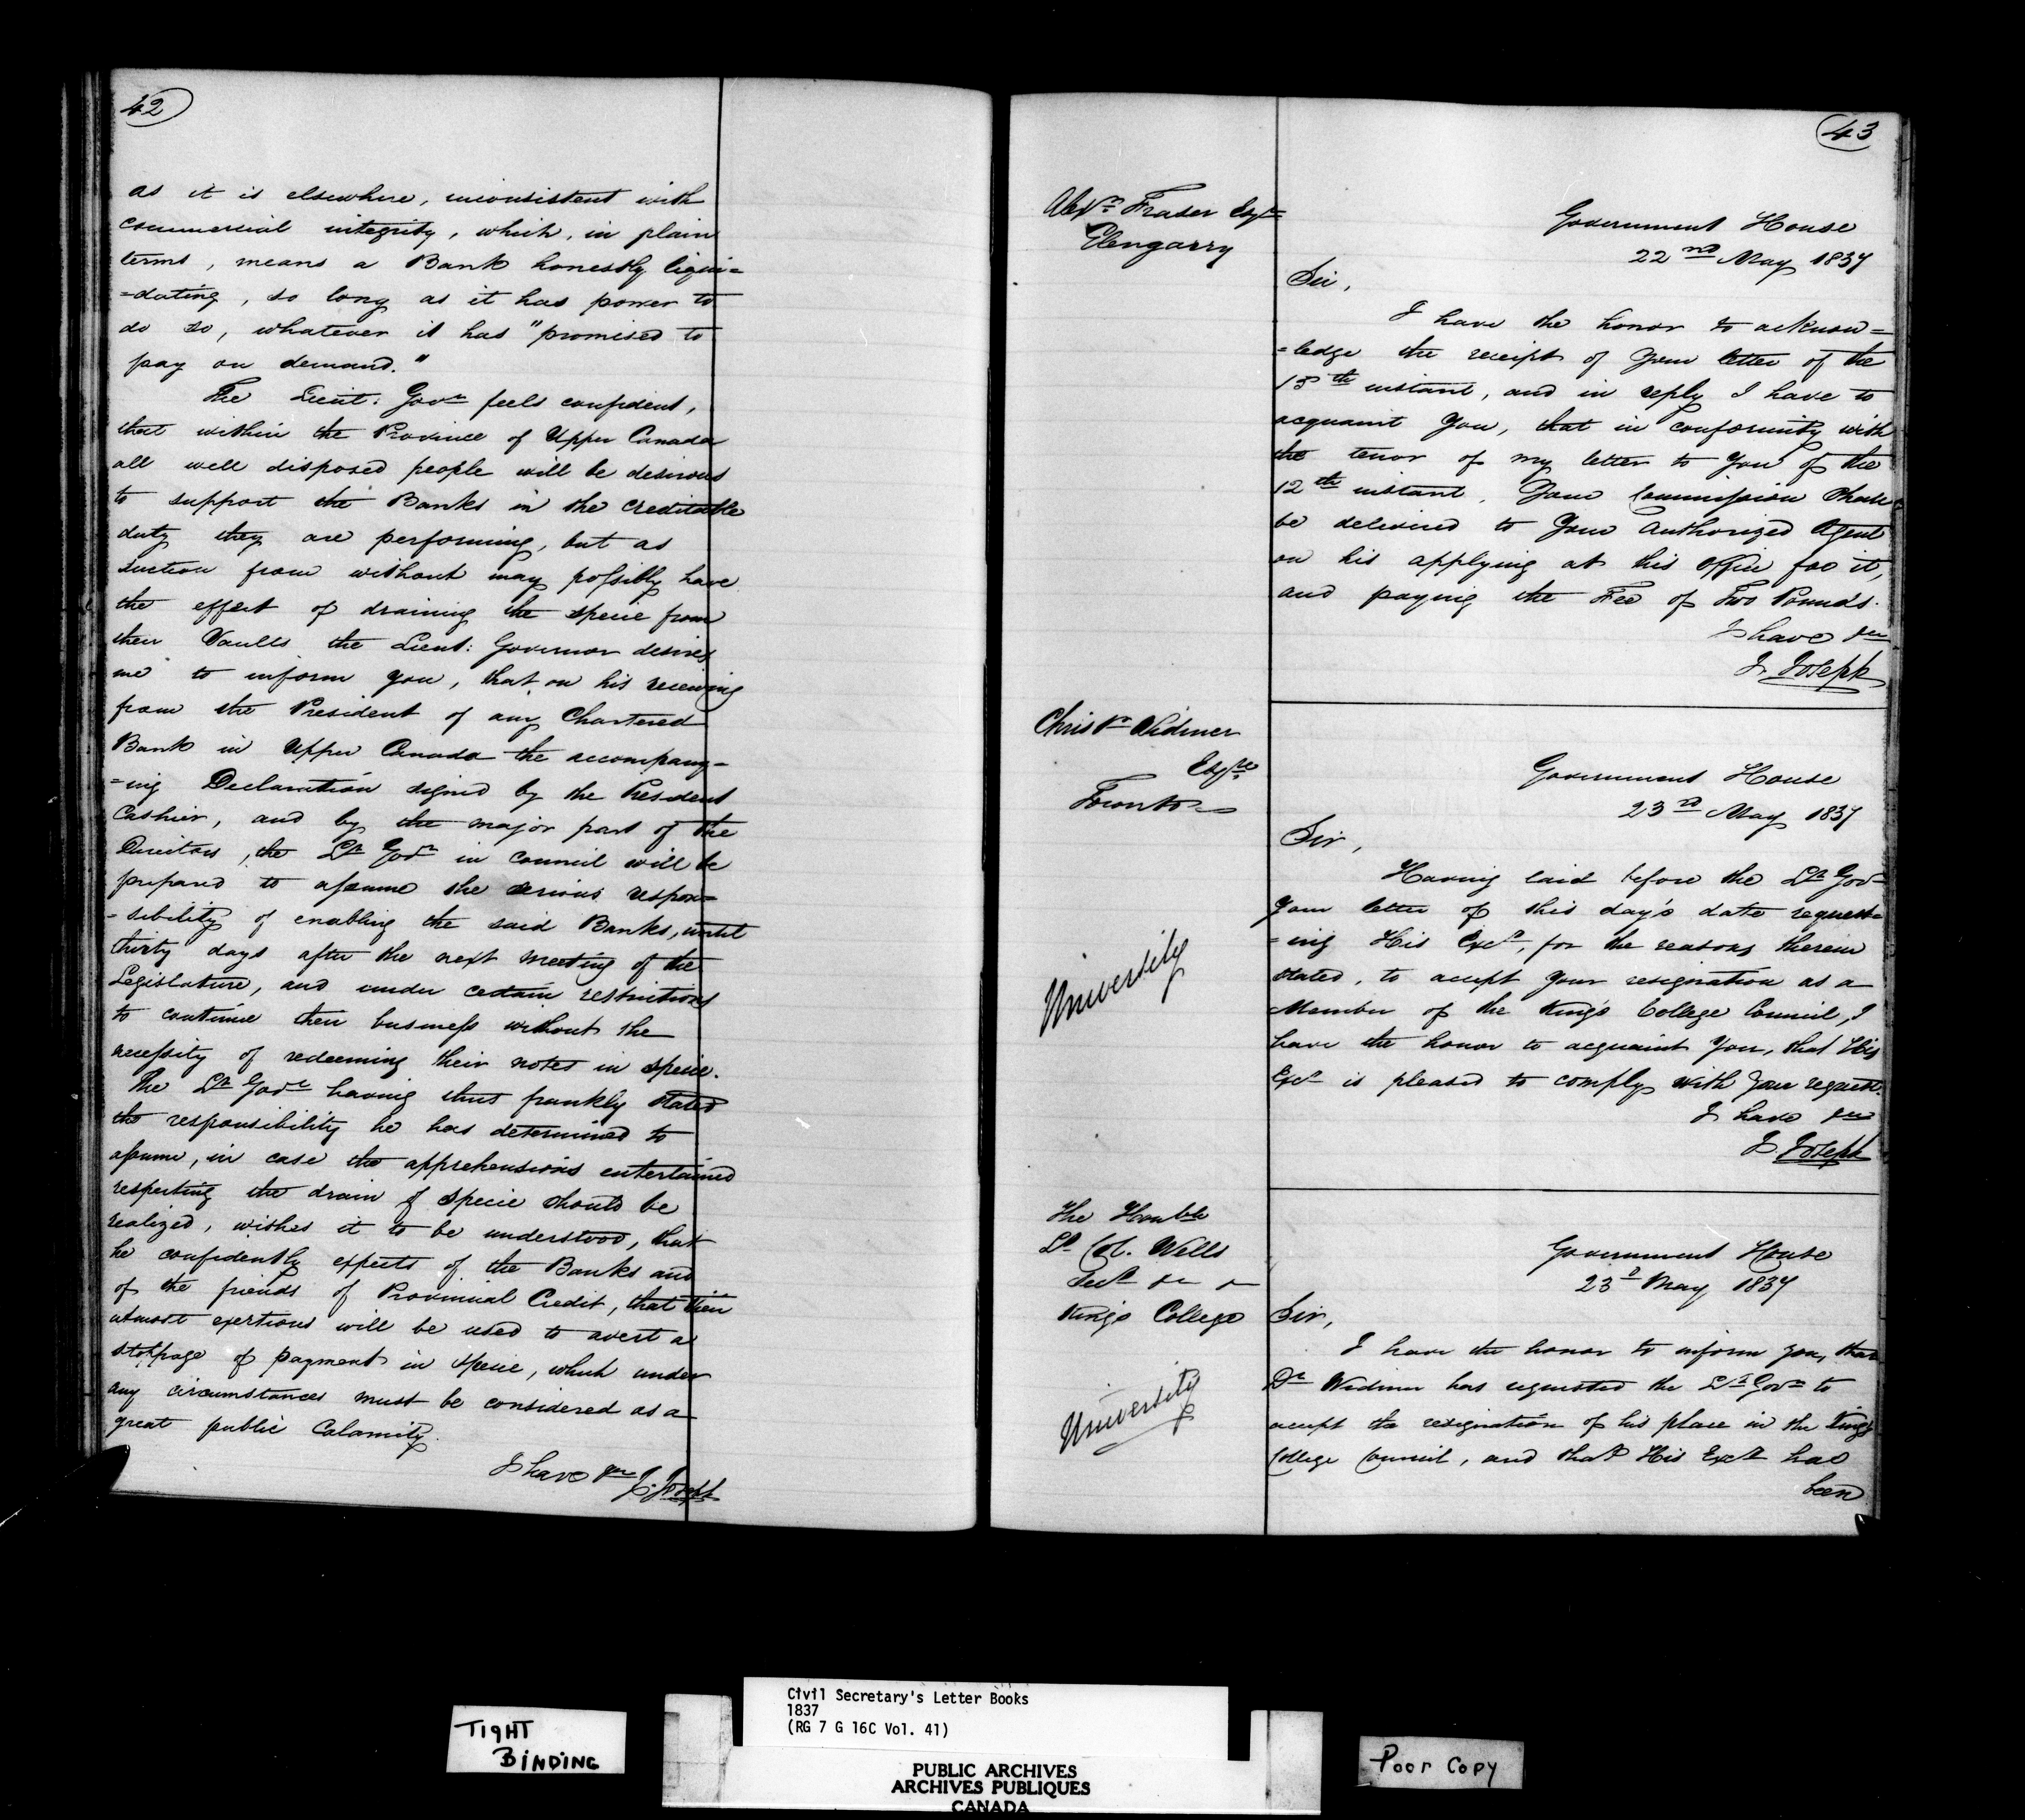 42
as it is elsewhere, inconsistent with
commercial integrity, which, in plain
terms, means a Bank honestly liqui=
=dating, so long as it has power to
do so, whatever it has "promised to
pay on demand."
The Lieut: Govr feels confident,
that within the Province of Upper Canada
all well disposed people will be desirous
to support the Banks in the creditable
duty they are performing, but as
suction from without may possibly have
the effect of draining the specie from
their Vaults the Lieut: Governor desires
me to inform you, that on his receiving
from the President of any Chartered
Bank in Upper Canada the accompany=
=ing Declaration signed by the President
Cashier, and by the major part of the
Directors, the Lt Govr in council will be
prepared to assume the serious respon=
=sibility of enabling the said Banks, until
thirty days after the next meeting of the
Legislature, and under certain restrictions
to continue their business without the
necessity of redeeming their notes in specie.
The Lt Govr having thus frankly stated
the responsibility he has determined to
assume, in case the apprehensions entertained
respecting the drain of specie should be
realized, wishes it to be understood, that
he confidently expects of the Banks and
of the friends of Provincial Credit, that their
utmost exertions will be used to avert a
stoppage of payment in specie, which under
any circumstances must be considered as a
great public Calamity.
I have &c J. Joseph
43
Alexr Fraser Esqre
Glengarry
Government House
22nd May 1837
Sir,
I have the honor to acknow=
=ledge the receipt of Your letter of the
15th instant, and in reply I have to
acquaint You, that in conformity with
the tenor of my letter to You of the
12th instant, Your Commission shall
be delivered to Your authorized Agent
on his applying at this Office for it,
and paying the Fee of Two Pounds.
I have &c
J. Joseph
Christr Widmer
Esqre
Toronto
Government House
23rd May 1837
Sir,
Having laid before the Lt Govr
Your letter of this day's date request=
=ing His Excy, for the reasons therein
stated, to accept your resignation as a
Member of the King's College Council, I
have the honor to acquaint You, that His
Excy is pleased to comply with Your request.
I have &c
J. Joseph
University
The Honble
Lt Col. Wells
Secy &c &c
King's College
Government House
23d May 1837
Sir,
I have the honor to inform you, that
Dr Widmer has requested the Lt Govr to
accept the resignation of his place in the King's
College Council, and that His Excy has
been
University
TIGHT
BINDING
Civil Secretary's Letter Books
1837
(RG 7 G 16C Vol. 41)
PUBLIC ARCHIVES
ARCHIVES PUBLIQUES
CANADA
Poor Copy